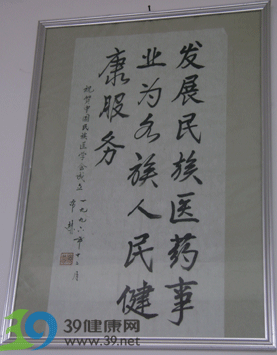 发展民族医药事
业为各族人民健
康服务
祝贺中国民族医学会成立
一九九六年十二月
39健康网
www.39.net